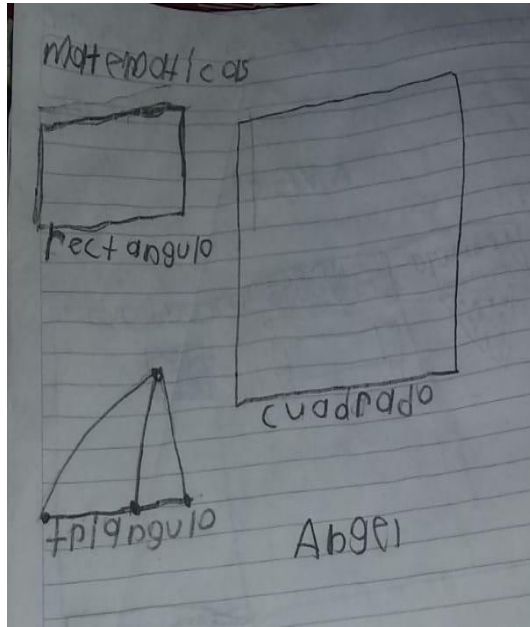 matematicas
rectangulo
cuadrado
triangulo
Angel